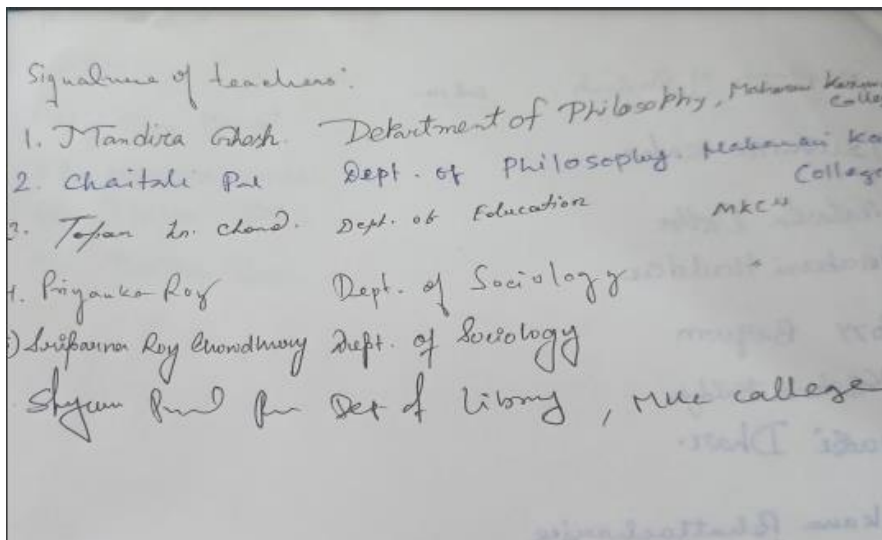 Signature of teachers:
1. Mandira Ghosh. Department of Philosophy, Maharani Kasim
College
2. Chaitali Pal Dept. of Philosophy. Maharani Ka
College
3. Tapan Kr. Chand. Dept. of Education MKC"
4. Priyanka Roy Dept. of Sociology
5) Suparna Roy Chowdhury Dept. of Sociology
Shyam Dep of Library, MKC college